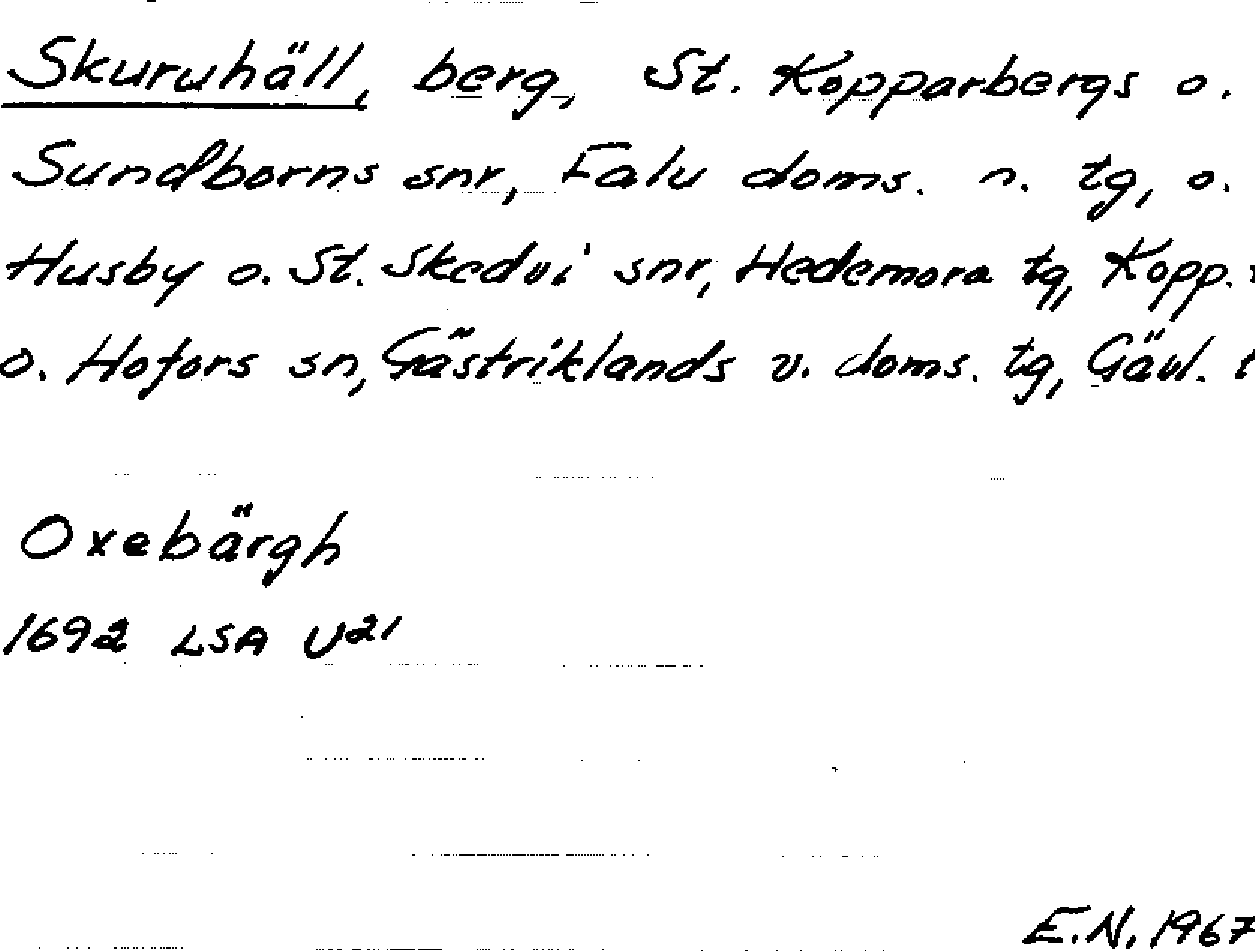 Skuruhäll, berg, St. Kopparbergs o.
Sundborns snr, Falu doms. n. tg, o.
Husby o. St. Skedvi snr, Hedemora tg, Kopp.
o. Hofors sn, Gästriklands v. doms. tg, Gävl.
Oxebärgh
1692 LSA U21
E.N. 1967